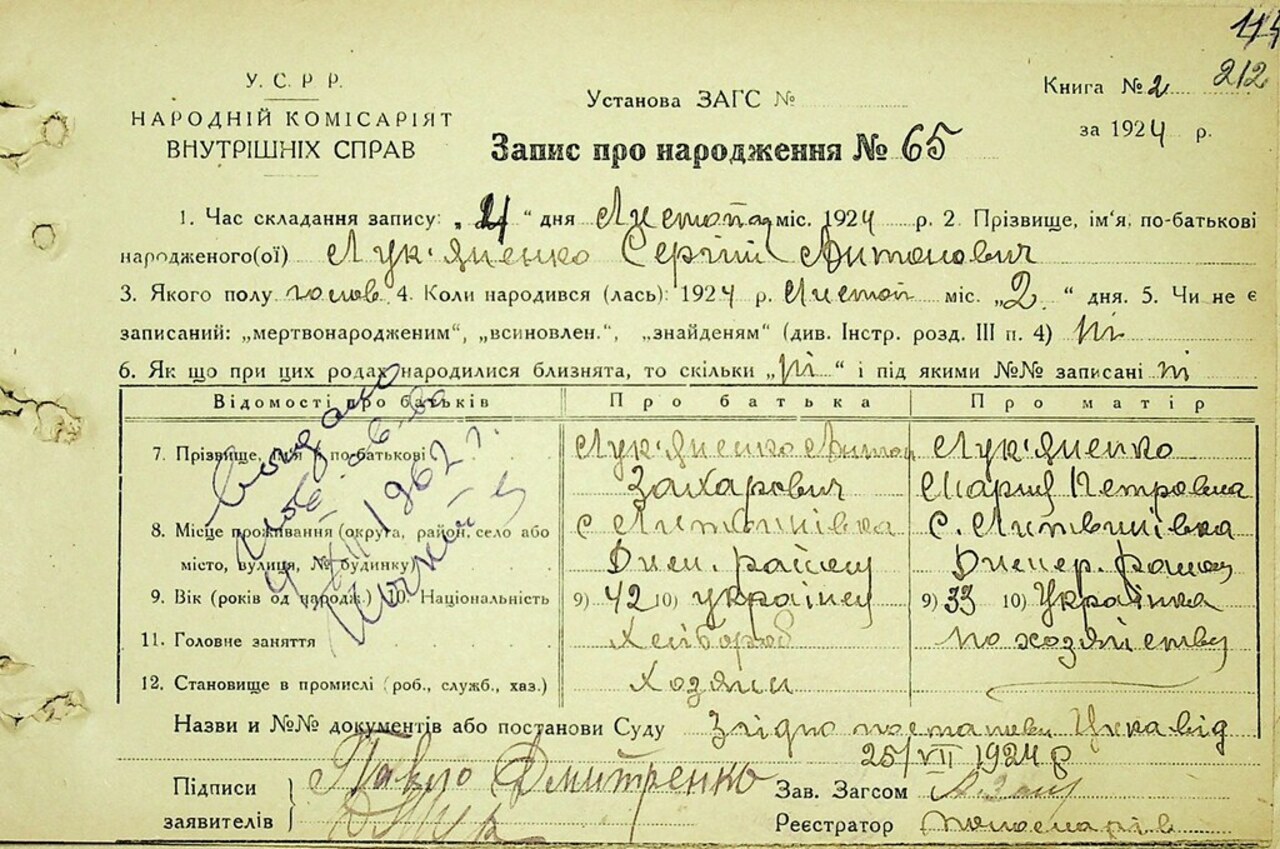 У. С. Р. Р.
НАРОДНІЙ КОМІСАРІЯТ
ВНУТРІШНІХ СПРАВ
Установа ЗАГС №
Запис про народження № 65
Книга № 2 212
за 1924 р.
1. Час складання запису: „4“ дня Листопад міс. 1924 р. 2. Прізвище, ім'я, по-батькові
народженого(ої) Лук'яненко Сергій Антонович
3. Якого полу чолов. 4. Коли народився (лась): 1924 р. Листоп міс. „2“ дня. 5. Чи не є
записаний: „мертвонародженим“, „всиновлен.“, „знайденям“ (див. Інстр. розд. III п. 4) ні
6. Як що при цих родах народилися близнята, то скільки „ні“ і під якими №№ записані ні
Відомості про батьків Про батька Про матір
7. Прізвище, ім'я і по-батькові Лук'яненко Антон Лук'яненко
Захарович Мария Петровна
8. Місце проживання (округа, район, село або с. Литвинівка с. Литвинівка
місто, вулиця, № будинку) Дим. району Димер. району
9. Вік (років од народж.) 10. Національність 9) 42 10) українец 9) 33 10) Українка
11. Головне заняття Хлібороб по хозяйству
12. Становище в промислі (роб., служб., хаз.) Хозяин
1962 г.
Назви и №№ документів або постанови Суду Згідно постанови від
25/VII 1924 р
Підписи Павло Дмитренко Зав. Загсом
заявителів Реєстратор